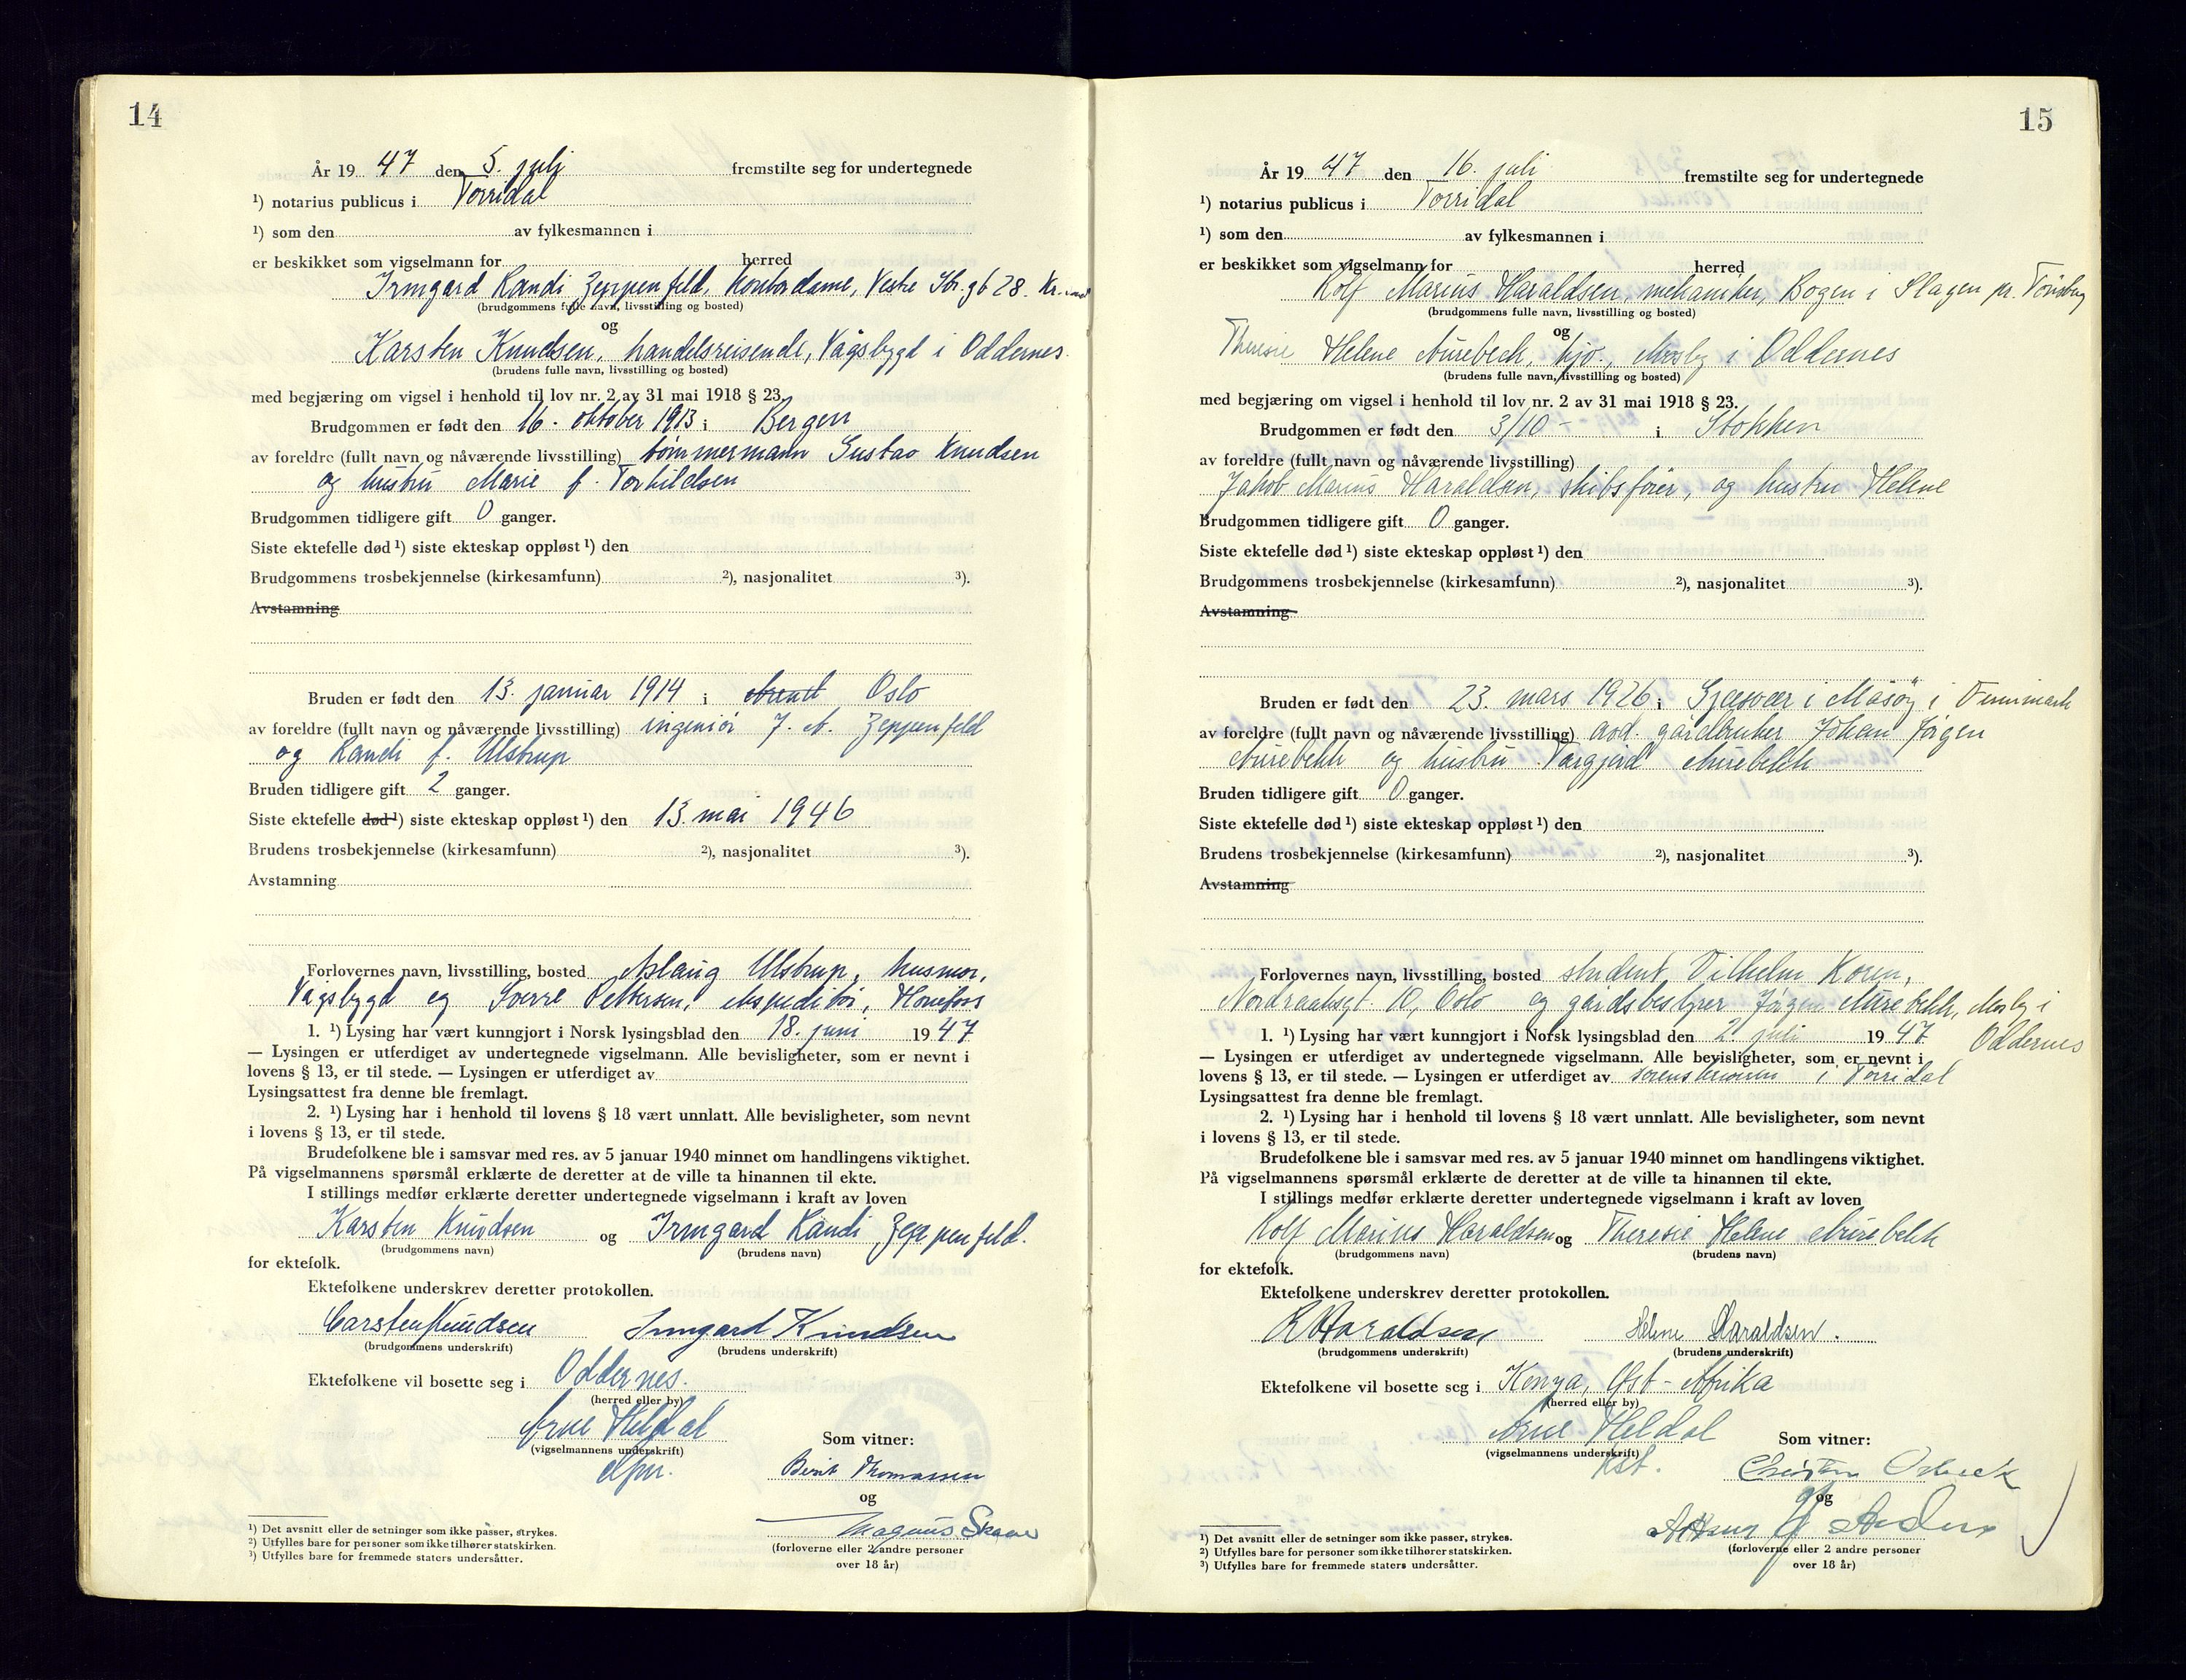 14
År 19 47 den 5. juli fremstilte seg for undertegnede
¹) notarius publicus i Torridal
¹) som den av fylkesmannen i
er beskikket som vigselmann for herred
Irmgard Randi Zeppenfeld, kontordame, Vestre Str.gt 28. Kr.sand
(brudgommens fulle navn, livsstilling og bosted)
og
Karsten Knudsen, handelsreisende, Vågsbygd i Oddernes.
(brudens fulle navn, livsstilling og bosted)
med begjæring om vigsel i henhold til lov nr. 2 av 31 mai 1918 § 23.
Brudgommen er født den 16. oktober 1913 i Bergen
av foreldre (fullt navn og nåværende livsstilling) tømmermann Gustav Knudsen
og hustru Marie f. Torkildsen
Brudgommen tidligere gift 0 ganger.
Siste ektefelle død ¹) siste ekteskap oppløst ¹) den
Brudgommens trosbekjennelse (kirkesamfunn) ²), nasjonalitet ³).
Avstamning
Bruden er født den 13. januar 1914 i Oslo
av foreldre (fullt navn og nåværende livsstilling) ingeniør J. A. Zeppenfeld
og Randi f. Ulstrup
Bruden tidligere gift 2 ganger.
Siste ektefelle død ¹) siste ekteskap oppløst ¹) den 13. mai 1946
Brudens trosbekjennelse (kirkesamfunn) ²), nasjonalitet ³).
Avstamning
Forlovernes navn, livsstilling, bosted Aslaug Ulstrup, husmor,
Vågsbygd og Sverre Pettersen, ekspeditør, Hønefoss
1. ¹) Lysing har vært kunngjort i Norsk lysingsblad den 18. juni 19 47
— Lysingen er utferdiget av undertegnede vigselmann. Alle bevisligheter, som er nevnt i
lovens § 13, er til stede. — Lysingen er utferdiget av
Lysingsattest fra denne ble fremlagt.
2. ¹) Lysing har i henhold til lovens § 18 vært unnlatt. Alle bevisligheter, som nevnt
i lovens § 13, er til stede.
Brudefolkene ble i samsvar med res. av 5 januar 1940 minnet om handlingens viktighet.
På vigselmannens spørsmål erklærte de deretter at de ville ta hinannen til ekte.
I stillings medfør erklærte deretter undertegnede vigselmann i kraft av loven
Karsten Knudsen og Irmgard Randi Zeppenfeld.
(brudgommens navn) (brudens navn)
for ektefolk.
Ektefolkene underskrev deretter protokollen.
Carsten Knudsen Irmgard Knudsen
(brudgommens underskrift) (brudens underskrift)
Ektefolkene vil bosette seg i Oddernes.
(herred eller by)
Arne Heldal
(vigselmannens underskrift)
Som vitner:
Berit Thomassen
og
Magnus
(forloverne eller 2 andre personer
over 18 år)
¹) Det avsnitt eller de setninger som ikke passer, strykes.
²) Utfylles bare for personer som ikke tilhører statskirken.
³) Utfylles bare for fremmede staters undersåtter.
15
År 19 47 den 16. juli fremstilte seg for undertegnede
¹) notarius publicus i Torridal
¹) som den av fylkesmannen i
er beskikket som vigselmann for herred
Rolf Marius Haraldsen, mekaniker, Bogen i Slagen pr. Tønsberg
(brudgommens fulle navn, livsstilling og bosted)
og
Therese Helene Aurebech, hjv., Mosby i Oddernes
(brudens fulle navn, livsstilling og bosted)
med begjæring om vigsel i henhold til lov nr. 2 av 31 mai 1918 § 23.
Brudgommen er født den 3/10 - i Stokken
av foreldre (fullt navn og nåværende livsstilling)
Jakob Marius Haraldsen, skibsfører, og hustru Helene
Brudgommen tidligere gift 0 ganger.
Siste ektefelle død ¹) siste ekteskap oppløst ¹) den
Brudgommens trosbekjennelse (kirkesamfunn) ²), nasjonalitet ³).
Avstamning
Bruden er født den 23. mars 1926 i Gjæsvær i Måsøy i Finnmark
av foreldre (fullt navn og nåværende livsstilling) avd. gårdbruker Johan Jørgen
Aurebekk og hustru Aurebekk
Bruden tidligere gift 0 ganger.
Siste ektefelle død ¹) siste ekteskap oppløst ¹) den
Brudens trosbekjennelse (kirkesamfunn) ²), nasjonalitet ³).
Avstamning
Forlovernes navn, livsstilling, bosted student Vilhelm Koren,
Nordraaksgt. 10, Oslo og gårdsbestyrer Jørgen Aurebekk, Mosby i
Oddernes
1. ¹) Lysing har vært kunngjort i Norsk lysingsblad den 2. juli 19 47
— Lysingen er utferdiget av undertegnede vigselmann. Alle bevisligheter, som er nevnt i
lovens § 13, er til stede. — Lysingen er utferdiget av sorenskriveren i Torridal
Lysingsattest fra denne ble fremlagt.
2. ¹) Lysing har i henhold til lovens § 18 vært unnlatt. Alle bevisligheter, som nevnt
i lovens § 13, er til stede.
Brudefolkene ble i samsvar med res. av 5 januar 1940 minnet om handlingens viktighet.
På vigselmannens spørsmål erklærte de deretter at de ville ta hinannen til ekte.
I stillings medfør erklærte deretter undertegnede vigselmann i kraft av loven
Rolf Marius Haraldsen og Therese Helene Aurebekk
(brudgommens navn) (brudens navn)
for ektefolk.
Ektefolkene underskrev deretter protokollen.
R Haraldsen Helene Haraldsen.
(brudgommens underskrift) (brudens underskrift)
Ektefolkene vil bosette seg i Kenya, Øst-Afrika
(herred eller by)
Arne Heldal
(vigselmannens underskrift)
Kst.
Som vitner:
og
(forloverne eller 2 andre personer
over 18 år)
¹) Det avsnitt eller de setninger som ikke passer, strykes.
²) Utfylles bare for personer som ikke tilhører statskirken.
³) Utfylles bare for fremmede staters undersåtter.